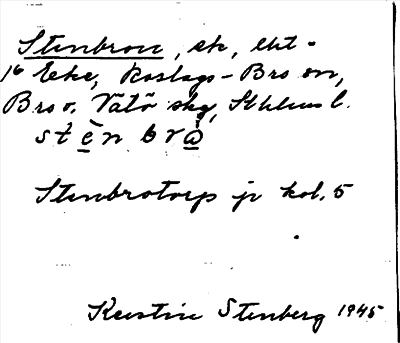 Stenbron, ek, ekt.
16 Eke, Roslags-Bro sn,
Bro o. Vätö skg, Sthlms l.
stèn brò̀
Stenbrotorp jr kol. 5
Kerstin Stenberg 1945